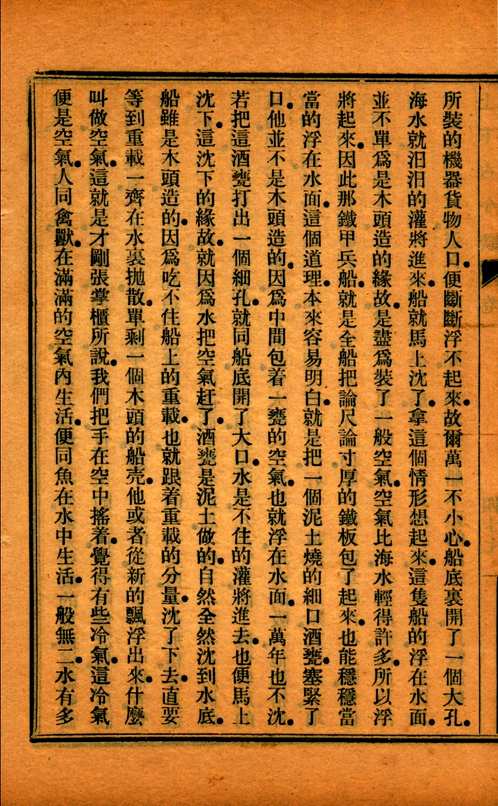 所裝的機器貨物人口便斷斷浮不起來故爾萬一不小心船底裏開了一個大孔
海水就汩汩的灌將進來船就馬上沈了拿這個情形想起來這隻船的浮在水面
並不單爲是木頭造的緣故是盡爲裝了一般空氣空氣比海水輕得許多所以浮
將起來因此那鐵甲兵船就是全船把論尺論寸厚的鐵板包了起來也能穩穩當
當的浮在水面這個道理本來容易明白就是把一個泥土燒的細口酒甕塞緊了
口他並不是木頭造的因爲中間包着一甕的空氣也就浮在水面一萬年也不沈
若把這酒甕打出一個細孔就同船底開了大口水是不住的灌將進去也便馬上
沈下這沈下的緣故就因爲水把空氣赶了酒甕是泥土做的自然全然沈到水底
船雖是木頭造的因爲吃不住船上的重載也就跟着重載的分量沈了下去直要
等到重載一齊在水裏拋散單剩一個木頭的船壳他或者從新的飄浮出來什麼
叫做空氣這就是才剛張掌櫃所說我們把手在空中搖着覺得有些冷氣這冷氣
便是空氣人同禽獸在滿滿的空氣內生活便同魚在水中生活一般無二水有多